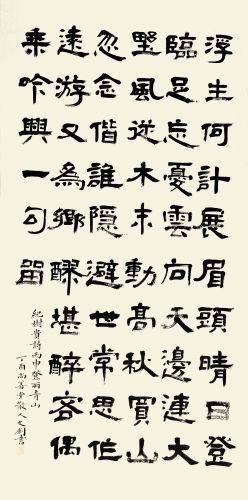 浮生何計展眉頭晴日登
臨足忘憂雲向天邊連大
野風從木末動高秋買山
忽念偕誰隱避世常思作
遠游又為鄉醪堪醉客偶
乘吟興一句留
紀樹貴詩丙申登丽青山
丁酉尚善堂散人文剑書